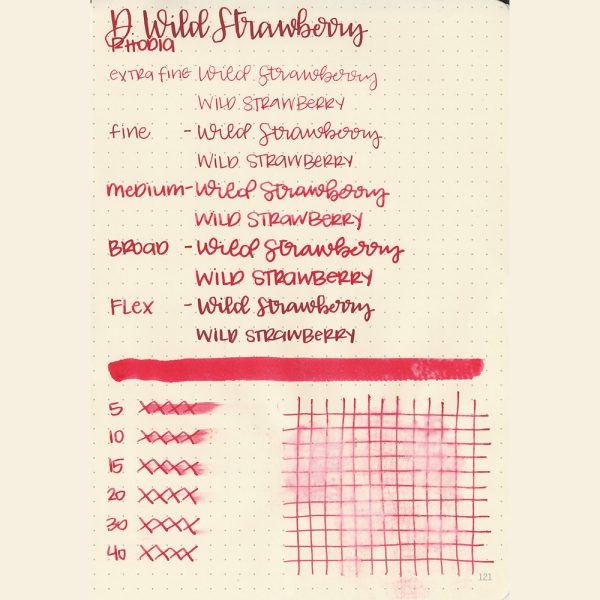 D Wild Strawberry
RHODIA
extra fine Wild Strawberry
WILD STRAWBERRY
fine - Wild Strawberry
WILD STRAWBERRY
medium - Wild Strawberry
WILD STRAWBERRY
BROAD - Wild Strawberry
WILD STRAWBERRY
FLEX - Wild Strawberry
WILD STRAWBERRY
5 XXXX
10 XXXX
15 XXXX
20 XXXX
30 XXXX
40 XXXX
121